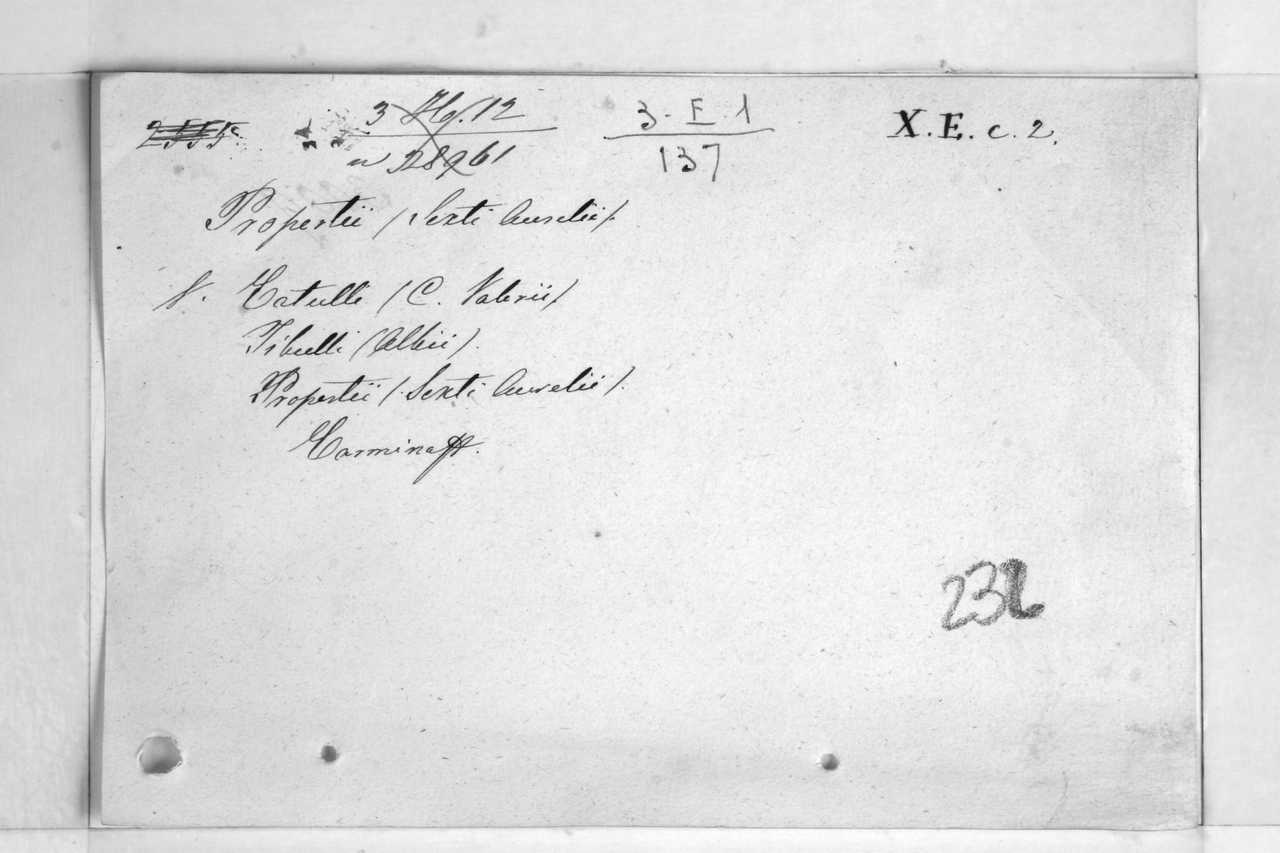 3 Hg. 12 3. E. 1 X. E. c. 2.
28961 137
Propertii (Sexti Aurelii).
V. Catulli (C. Valerii)
Tibulli (Albii).
Propertii (Sexti Aurelii).
Carmina